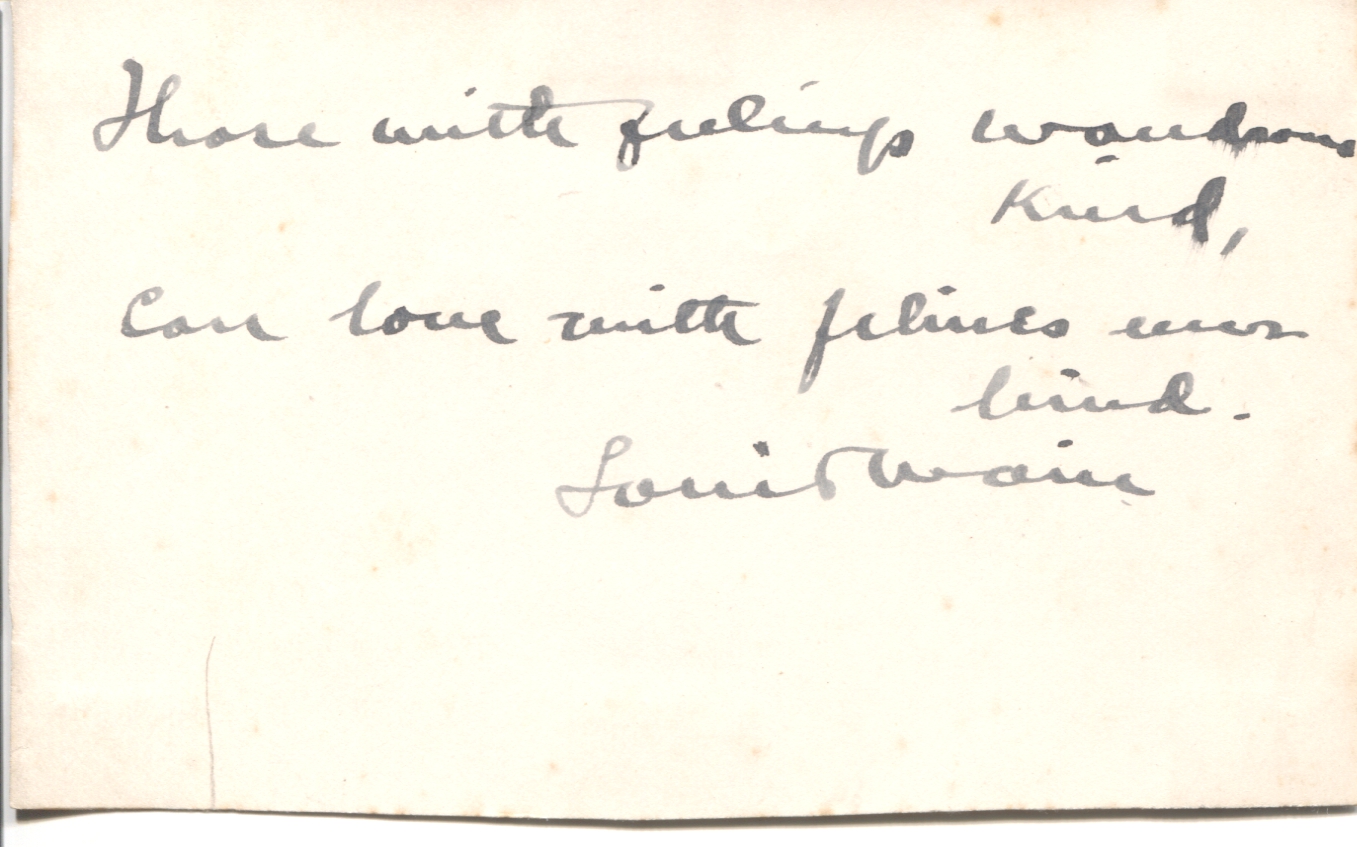 Those with feelings wondrous
Kind,
Can love with felines ever
bind.
Louis Wain